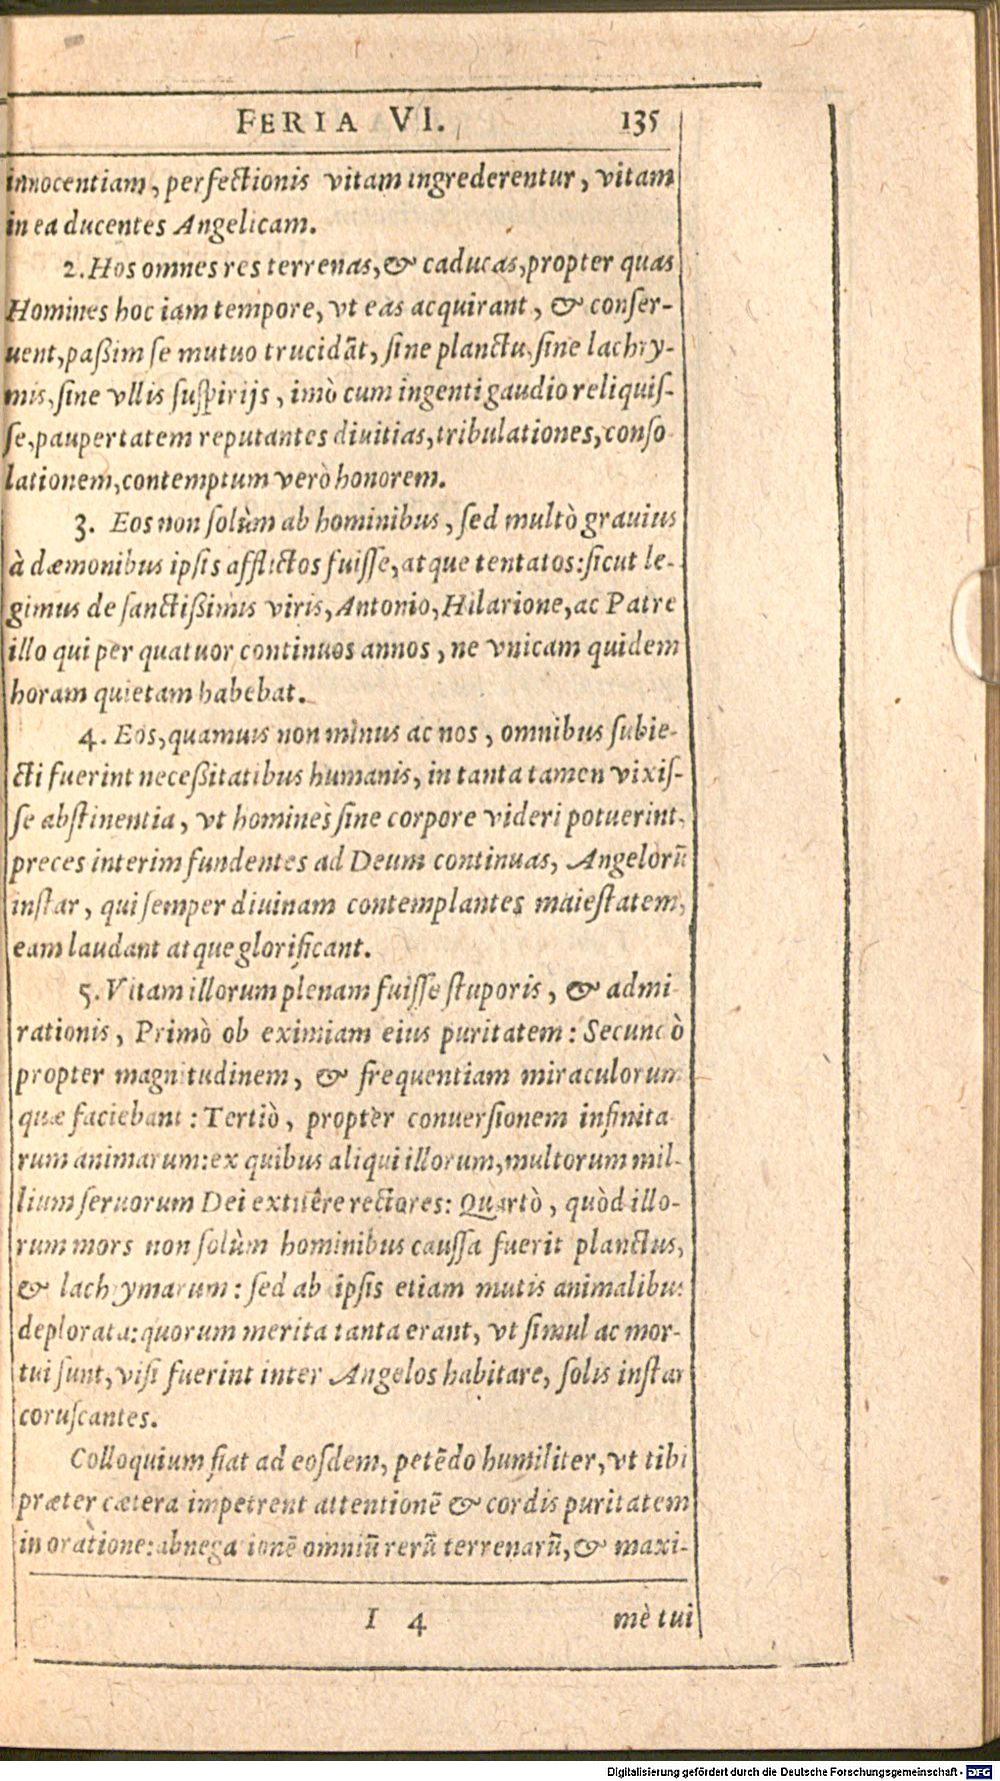 FERIA VI. 135
innocentiam, perfectionis vitam ingrederentur, vitam
in ea ducentes Angelicam.
2. Hos omnes res terrenas, & caducas, propter quas
Homines hoc iam tempore, vt eas acquirant, & conser-
uent, paßim se mutuo trucidāt, sine planctu, sine lachry-
mis, sine vllis suspirijs, imò cum ingenti gaudio reliquis-
se, paupertatem reputantes diuitias, tribulationes, conso
lationem, contemptum verò honorem.
3. Eos non solùm ab hominibus, sed multò grauius
à dæmonibus ipsis afflictos fuisse, atque tentatos: sicut le-
gimus de sanctißimis viris, Antonio, Hilarione, ac Patre
illo qui per quatuor continuos annos, ne vnicam quidem
horam quietam habebat.
4. Eos, quamuis non minus ac nos, omnibus subie-
cti fuerint neceßitatibus humanis, in tanta tamen vixis-
se abstinentia, vt homines sine corpore videri potuerint,
preces interim fundentes ad Deum continuas, Angelorū
instar, qui semper diuinam contemplantes maiestatem,
eam laudant atque glorificant.
5. Vitam illorum plenam fuisse stuporis, & admi
rationis, Primò ob eximiam eius puritatem: Secundò
propter magnitudinem, & frequentiam miraculorum
quæ faciebant: Tertiò, propter conuersionem infinita
rum animarum: ex quibus aliqui illorum, multorum mil-
lium seruorum Dei extitêre rectores: Quartò, quòd illo-
rum mors non solùm hominibus caussa fuerit planctus,
& lachrymarum: sed ab ipsis etiam mutis animalibus
deplorata: quorum merita tanta erant, vt simul ac mor-
tui sunt, visi fuerint inter Angelos habitare, solis instar
coruscantes.
Colloquium fiat ad eosdem, petēdo humiliter, vt tibi
præter cætera impetrent attentionē & cordis puritatem
in oratione: abnegationē omniū rerū terrenarū, & maxi-
I 4 mè tui
Digitalisierung gefördert durch die Deutsche Forschungsgemeinschaft - DFG